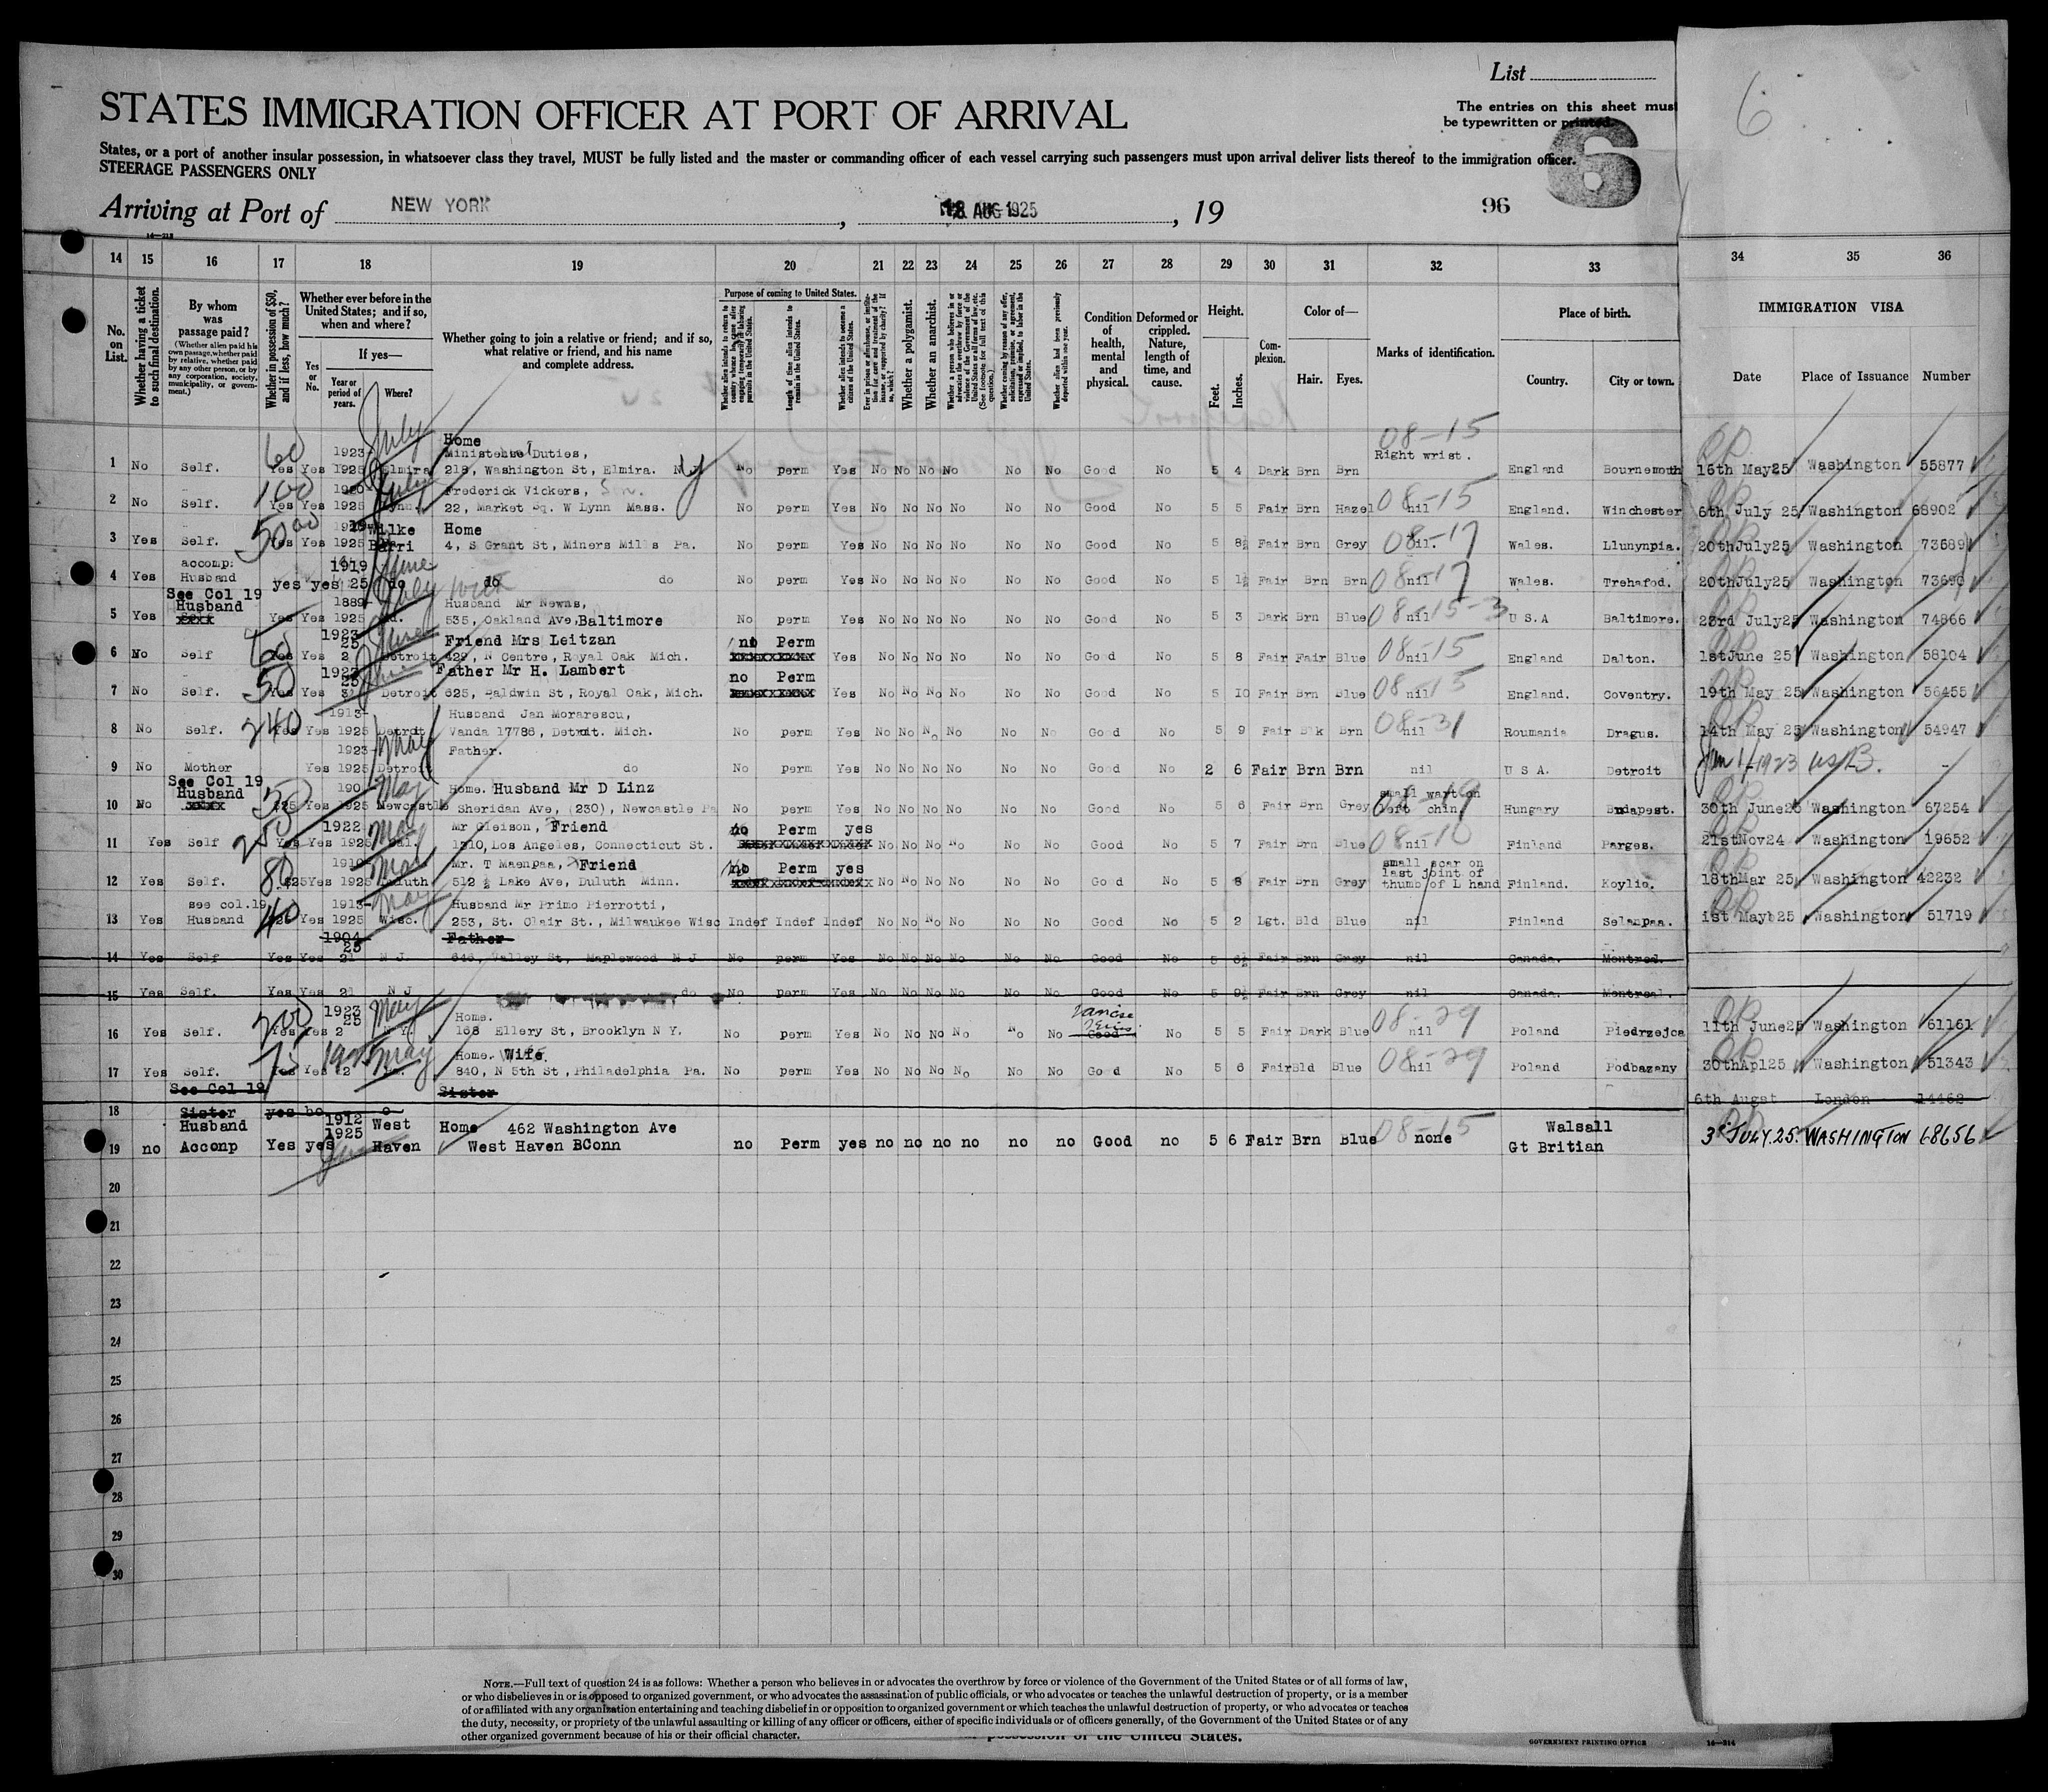 List
6
STATES IMMIGRATION OFFICER AT PORT OF ARRIVAL
The entries on this sheet must
be typewritten or printed.
6
States, or a port of another insular possession, in whatsoever class they travel, MUST be fully listed and the master or commanding officer of each vessel carrying such passengers must upon arrival deliver lists thereof to the immigration officer.
STEERAGE PASSENGERS ONLY
Arriving at Port of NEW YORK , AUG 1925 , 19 96
14 15 16 17 18 19 20 21 22 23 24 25 26 27 28 29 30 31 32 33 34 35 36
No. on List.
Whether having a ticket to such final destination.
By whom was passage paid?
(Whether alien paid his own passage, whether paid by relative, whether paid by any other person, or by any corporation, society, municipality, or government.)
Whether in possession of $50, and if less, how much?
Whether ever before in the United States; and if so, when and where?
Yes or No.
If yes—
Year or period of years.
Where?
Whether going to join a relative or friend; and if so, what relative or friend, and his name and complete address.
Purpose of coming to United States.
Length of time alien intends to remain in the United States.
Whether alien intends to become a citizen of the United States.
Whether a polygamist.
Whether an anarchist.
Condition of health, mental and physical.
Deformed or crippled. Nature, length of time, and cause.
Height.
Feet.
Inches.
Complexion.
Color of—
Hair.
Eyes.
Marks of identification.
Place of birth.
Country.
City or town.
IMMIGRATION VISA
Date
Place of Issuance
Number
60 1923- July Home 08-15
Duties, Right wrist.
1 No Self. Yes Yes 1925 Elmira 218, Washington St, Elmira. N Y No perm Yes No No No No No No Good No 5 4 Dark Brn Brn England Bournemouth 15th May25 Washington 55877
100 Frederick Vickers, Son.
2 No Self. Yes Yes 1925 Lynn. 22, Market Sq. W Lynn Mass. No perm Yes No No No No No No Good No 5 5 Fair Brn Hazel 08-15 nil England. Winchester 6th July 25 Washington 68902
50 00 Wilke Home
3 Yes Self. Yes Yes 1925 Barri 4, S Grant St, Miners Mills Pa. No perm Yes No No No No No No Good No 5 8½ Fair Brn Grey 08-17 nil. Wales. Llunynpia. 20thJuly25 Washington 73689
accomp: 1919 June
4 Yes Husband yes yes 25 do do do No perm Yes No No No No No No Good No 5 1½ Fair Brn Brn 08-17 nil Wales. Trehafod. 20thJuly25 Washington 73690
See Col 19
Husband 1889- July Husband Mr Newns,
5 Yes Self Yes Yes 1925 Md. 535, Oakland Ave, Baltimore No perm Yes No No No No No No Good No 5 3 Dark Brn Blue 08-15-3 nil U S A Baltimore. 23rd July25 Washington 74866
60 1923 25 June Friend Mrs Leitzan no Perm
6 No Self Yes Yes 2 Detroit 429, N Centre, Royal Oak Mich. Yes No No No No No No Good No 5 8 Fair Fair Blue 08-15 nil England Dalton. 1stJune 25 Washington 58104
50 25 June Father Mr H. Lambert no Perm
7 No Self. Yes Yes Detroit 625, Baldwin St, Royal Oak, Mich. Yes No No No No No No Good No 5 10 Fair Brn Blue 08-15 nil England. Coventry. 19th May 25 Washington 56455
240 1913- Husband Jan Morarescu,
8 No Self. Yes Yes 1925 Detroit Vanda 17786, Detroit. Mich. No perm Yes No No No No No No Good No 5 9 Fair Blk Brn 08-31 nil Roumania Dragus. 14th May 25 Washington 54947
1923- May Father.
9 No Mother Yes 1925 Detroit do No perm Yes No No No No No No Good No 2 6 Fair Brn Brn nil U S A. Detroit Jan 1/1923 USB. -
See Col 19
Husband 50 190 May Home. Husband Mr D Linz small wart on
10 No $25 Yes 1925 Newcastle Sheridan Ave, (230), Newcastle Pa No perm Yes No No No No No No Good No 5 6 Fair Brn Grey left chin Hungary Budapest. 30th June25 Washington 67254
250 1922 May Mr Gleison, Friend no Perm yes
11 Yes Self Yes Yes 1925 Cal. 1210, Los Angeles, Connecticut St. No No No No No No Good No 5 7 Fair Brn Blue 08-10 nil Finland Parges. 21stNov24 Washington 19652
80 1910- May Mr. T Maenpaa, Friend no Perm yes small scar on last joint of
12 Yes Self. $25 Yes 1925 Duluth 512 ½ Lake Ave, Duluth Minn. No No No No No No Good No 5 8 Fair Brn Grey thumb of L hand Finland. Koylio. 18thMar 25 Washington 42232
see col.19 40 1913- May Husband Mr Primo Pierrotti,
13 Yes Husband Yes 1925 Wisc. 253, St. Clair St., Milwaukee Wisc Indef Indef Indef No No No No No No Good No 5 2 Lgt. Bld Blue nil Finland Selanpaa. 1st May 25 Washington 51719
1904 25 Father
14 Yes Self Yes Yes 21 N J. 646, Valley St, Maplewood N J No perm Yes No No No No No No Good No 5 6½ Fair Brn Grey nil Canada. Montreal.
15 Yes Self. Yes Yes 21 N J do No perm Yes No No No No No No Good No 5 9½ Fair Brn Grey nil Canada. Montreal.
200 1923 25 May Home.
16 Yes Self. Yes Yes 2 N Y. 168 Ellery St, Brooklyn N Y. No perm Yes No No No No No No Good No 5 5 Fair Dark Blue 08-29 nil Poland Piedrzejca 11th June25 Washington 61161
75 1925 May Home. Wife.
17 Yes Self. Yes Yes 2 Pa. 840, N 5th St, Philadelphia Pa. No perm Yes No No No No No No Good No 5 6 Fair Bld Blue 08-29 nil Poland Podbazany 30thApl25 Washington 51343
See Col 19 Sister
18 Sister yes 6th Augst London 14462
Husband 1912 1925 West Home 462 Washington Ave Walsall
19 no Acconp Yes yes June Haven West Haven BConn no Perm yes no no no no no no Good no 5 6 Fair Brn Blue 08-15 none Gt Britian 3rd JULY.25. WASHINGTON 68656
20
21
22
23
24
25
26
27
28
29
30
NOTE.—Full text of question 24 is as follows: Whether a person who believes in or advocates the overthrow by force or violence of the Government of the United States or of all forms of law,
or who disbelieves in or is opposed to organized government, or who advocates the assassination of public officials, or who advocates or teaches the unlawful destruction of property, or is a member
of or affiliated with any organization entertaining and teaching disbelief in or opposition to organized government or which teaches the unlawful destruction of property, or who advocates or teaches
the duty, necessity, or propriety of the unlawful assaulting or killing of any officer or officers, either of specific individuals or of officers generally, of the Government of the United States or of any
other organized government because of his or their official character.
possession of the United States.
GOVERNMENT PRINTING OFFICE
14—214